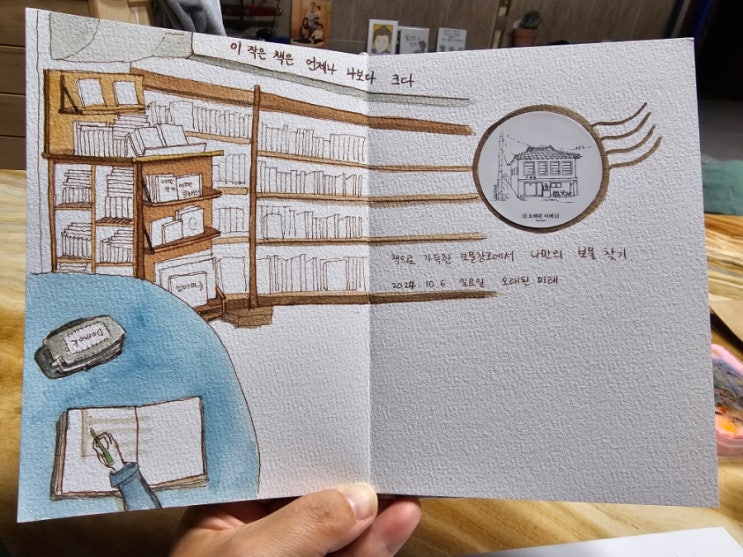 이 작은 책은 언제나 나보다 크다
오래된 미래
책으로 가득한 보물창고에서 나만의 보물 찾기
2024 10. 6 일요일 오래된 미래
Domok